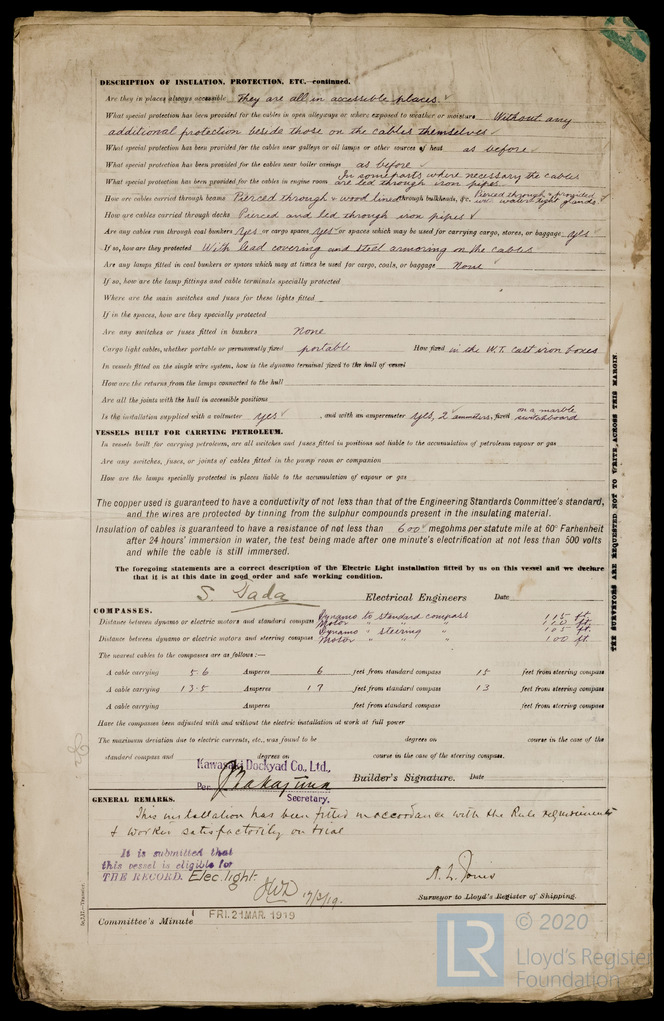 DESCRIPTION OF INSULATION, PROTECTION, ETC.—continued.
Are they in places always accessible They are all in accessible places. ✓
What special protection has been provided for the cables in open alleyways or where exposed to weather or moisture Without any
additional protection beside those on the cables themselves ✓
What special protection has been provided for the cables near galleys or oil lamps or other sources of heat as before ✓
What special protection has been provided for the cables near boiler casings as before ✓
What special protection has been provided for the cables in engine room In some parts where necessary the cables
are led through iron pipes
How are cables carried through beams Pierced through & wood lined through bulkheads, &c. Pierced through & provided
with water tight glands ✓
How are cables carried through decks Pierced and led through iron pipes ✓
Are any cables run through coal bunkers yes ✓ or cargo spaces yes ✓ or spaces which may be used for carrying cargo, stores, or baggage yes ✓
If so, how are they protected With lead covering and steel armoring on the cables ✓
Are any lamps fitted in coal bunkers or spaces which may at times be used for cargo, coals, or baggage None ✓
If so, how are the lamp fittings and cable terminals specially protected
Where are the main switches and fuses for these lights fitted
If in the spaces, how are they specially protected
Are any switches or fuses fitted in bunkers None
Cargo light cables, whether portable or permanently fixed portable How fixed in the W.T. cast iron boxes
In vessels fitted on the single wire system, how is the dynamo terminal fixed to the hull of vessel
How are the returns from the lamps connected to the hull
Are all the joints with the hull in accessible positions
Is the installation supplied with a voltmeter yes ✓, and with an amperemeter yes, 2 ✓ ammeters, fixed on a marble
switchboard
VESSELS BUILT FOR CARRYING PETROLEUM.
In vessels built for carrying petroleum, are all switches and fuses fitted in positions not liable to the accumulation of petroleum vapour or gas
Are any switches, fuses, or joints of cables fitted in the pump room or companion
How are the lamps specially protected in places liable to the accumulation of vapour or gas
The copper used is guaranteed to have a conductivity of not less than that of the Engineering Standards Committee's standard,
and the wires are protected by tinning from the sulphur compounds present in the insulating material.
Insulation of cables is guaranteed to have a resistance of not less than 600 ✓ megohms per statute mile at 60° Farhenheit
after 24 hours' immersion in water, the test being made after one minute's electrification at not less than 500 volts
and while the cable is still immersed.
The foregoing statements are a correct description of the Electric Light installation fitted by us on this vessel and we declare
that it is at this date in good order and safe working condition.
S. Tada Electrical Engineers Date
COMPASSES.
Distance between dynamo or electric motors and standard compass Dynamo to standard compass 115 ft.
Motor " " 110 ft.
Distance between dynamo or electric motors and steering compass Dynamo " steering " 105 ft.
Motor " " " 100 ft.
The nearest cables to the compasses are as follows:—
A cable carrying 5.6 Amperes 6 feet from standard compass 15 feet from steering compass
A cable carrying 13.5 Amperes 17 feet from standard compass 13 feet from steering compass
A cable carrying Amperes feet from standard compass feet from steering compass
Have the compasses been adjusted with and without the electric installation at work at full power
The maximum deviation due to electric currents, etc., was found to be degrees on course in the case of the
standard compass and degrees on course in the case of the steering compass.
Kawasaki Dockyad Co., Ltd.,
Per Builder's Signature. Date
Secretary.
GENERAL REMARKS.
This installation has been fitted in accordance with the Rule requirements
& worked satisfactorily on trial
It is submitted that
this vessel is eligible for
THE RECORD. Elec. light.
17/3/19.
Surveyor to Lloyd's Register of Shipping.
Committee's Minute FRI. 21 MAR. 1919
THE SURVEYORS ARE REQUESTED NOT TO WRITE ACROSS THIS MARGIN.
LR
© 2020
Lloyd's Register
Foundation